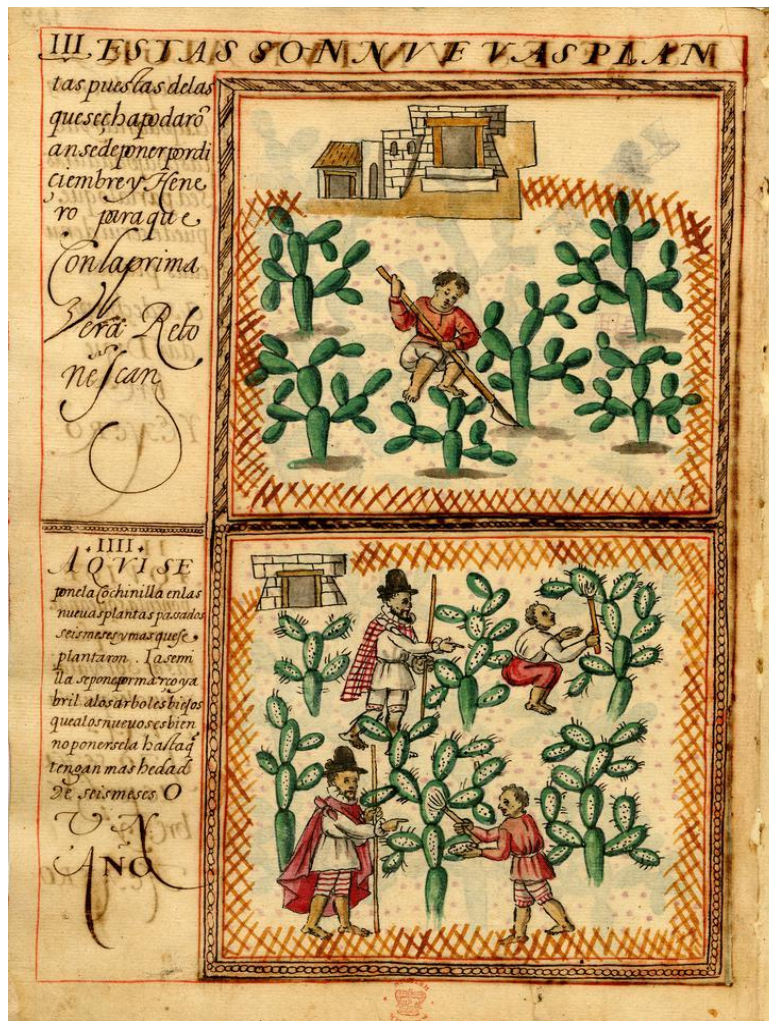 III ESTAS SON NVEVAS PLAN
tas puestas delas
que se cha podarō
an se de poner por di
ciembre y Hene
ro para que
Con la prima
Vera Reto
nescan
.IIII.
AQVI SE
pone la Cochinilla en las
nueuas plantas pasados
seis meses y mas que se
plantaron . La semi
lla se pone por março y a
bril a los arboles biejos
que a los nueuos es bien
no ponersela hasta q̄
tengan mas hedad
De seis meses O
VN
AÑO